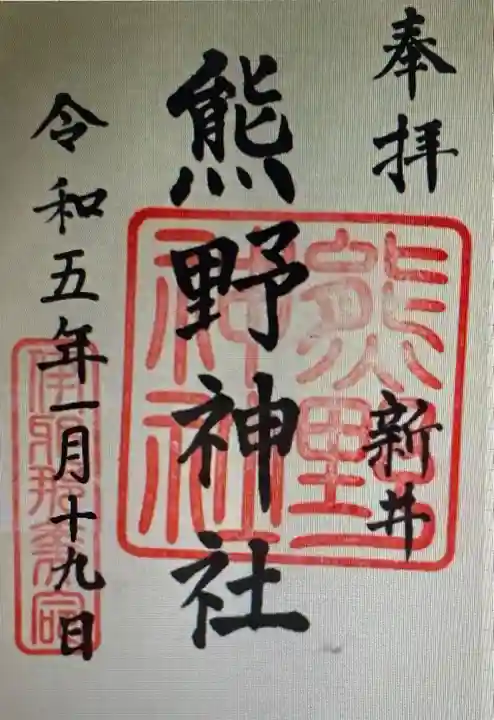 奉拝
新井
熊野神社
令和五年一月十九日
熊野
神社